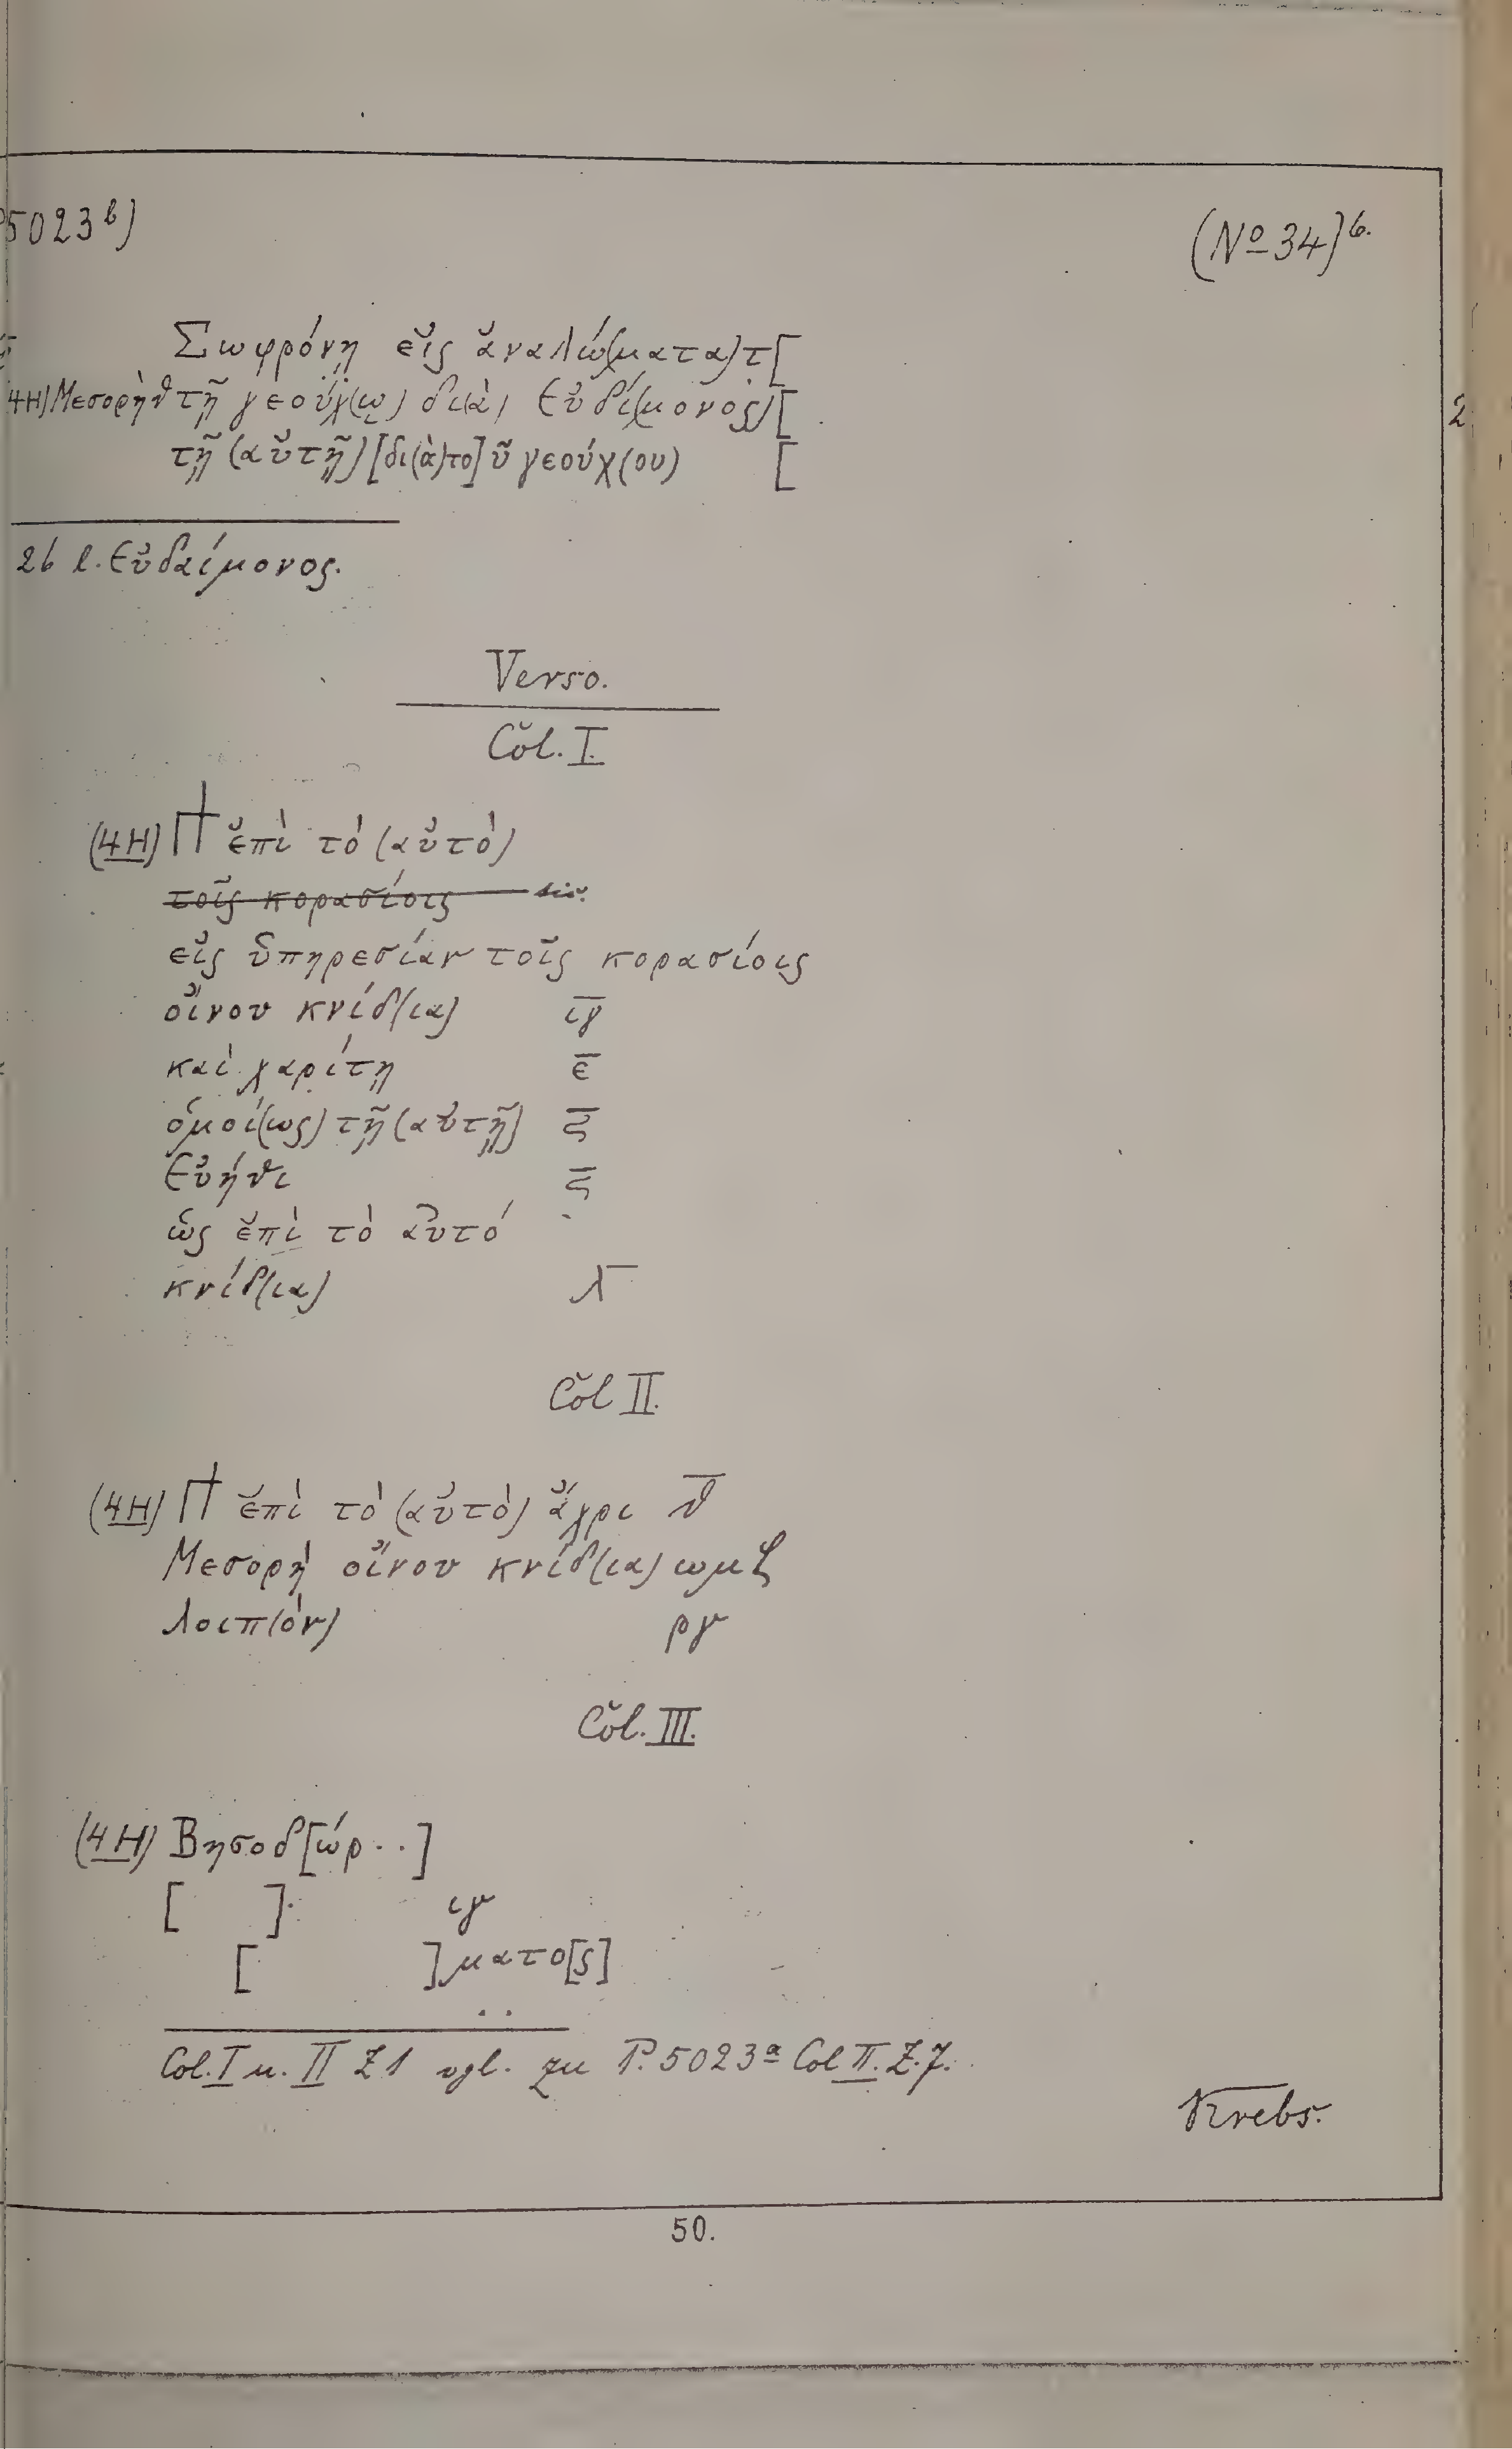 P5023ᵇ)
(No 34)6.
Σωφρόνῃ εἰς ἀναλώ(ματα) τ[
(4H) Μεσορὴ θ τῇ γεούχ(ῳ) δι(ὰ) Εὐδί(μονος) [
τῇ (αὐτῇ) [δι(ὰ) το]ῦ γεούχ(ου) [
26 l. Εὐδαίμονος.
Verso.
Col. I.
(4H) ἐπὶ τὸ (αὐτὸ)
τοῖς κορασίοις sic.
εἰς ὑπηρεσίαν τοῖς κορασίοις
οἴνου κνίδ(ια) ιγ
καὶ χαρίτῃ ε
ὁμοί(ως) τῇ (αὐτῇ) ϛ
Εὐήθι ϛ
ὡς ἐπὶ τὸ αὐτό
κνίδ(ια) λ
Col II.
(4H) ἐπὶ τὸ (αὐτὸ) ἄχρι θ
Μεσορὴ οἴνου κνίδ(ια) ωμζ
λοιπ(ὸν) ργ
Col. III.
(4H) Βησοδ[ώρ..]
[ ]. ιγ
[ ]ματο[ς]
..
Col. I u. II Z 1 vgl. zu P. 5023ª Col II. Z. 7.
Krebs.
50.